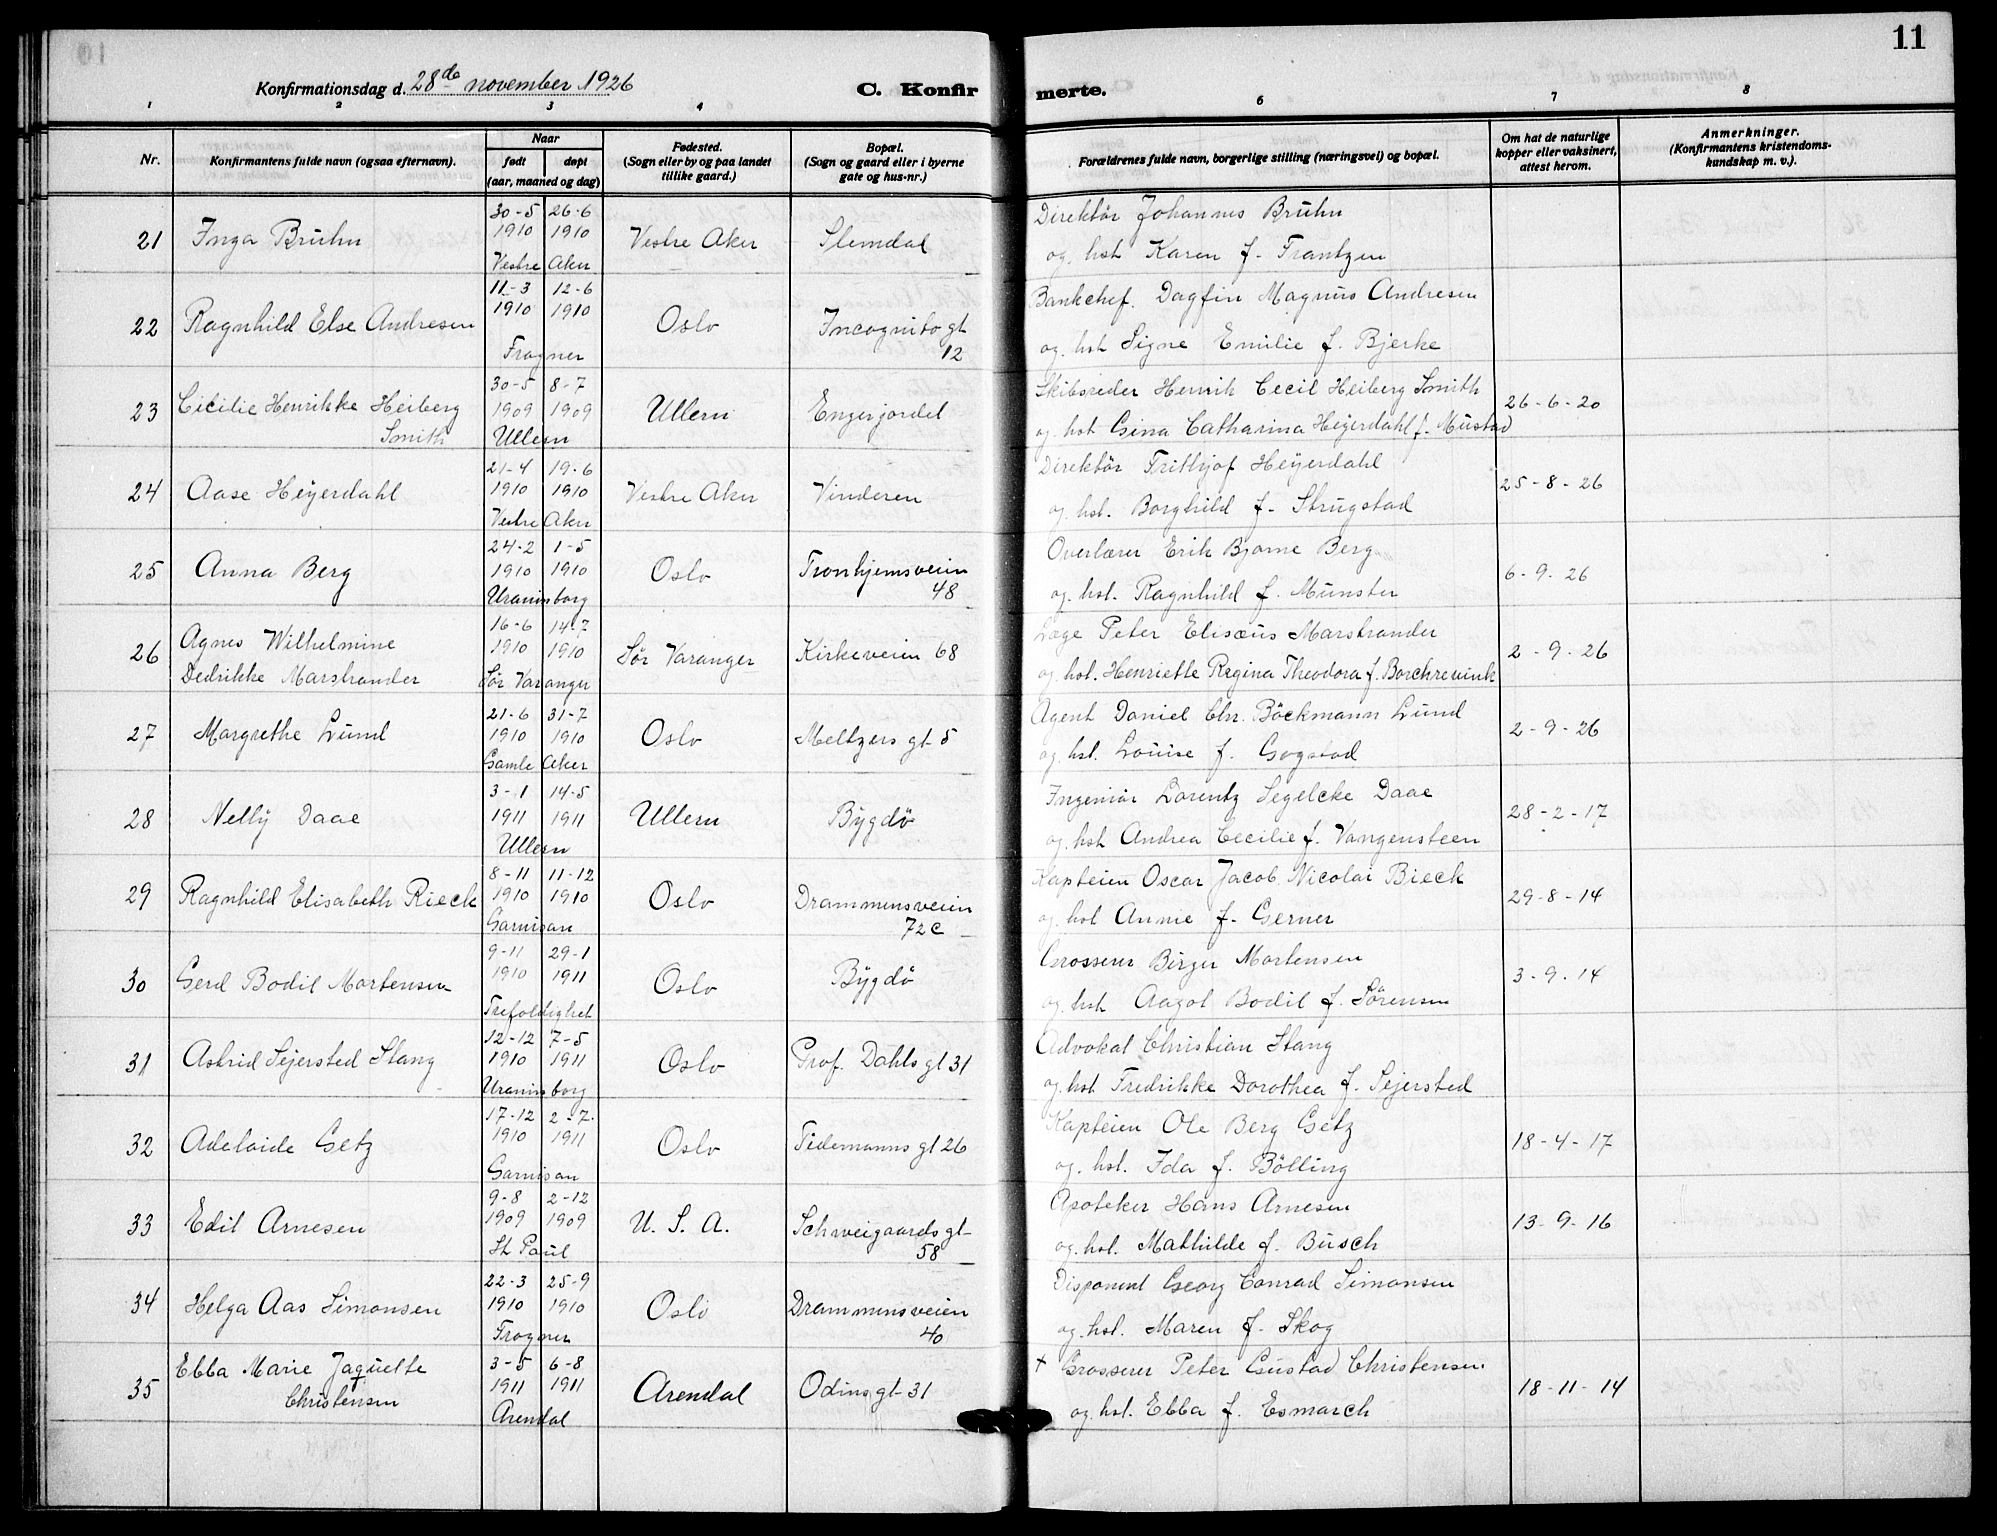 11
Konfirmationsdag d. 28de november 1926
C. Konfirmerte.
1 2 3 4 5 6 7 8
Nr.
Konfirmantens fulde navn (ogsaa efternavn).
Naar
født
døpt
(aar, maaned og dag)
Fødested.
(Sogn eller by og paa landet
tillike gaard.)
Bopæl.
(Sogn og gaard eller i byerne
gate og hus-nr.)
Forældrenes fulde navn, borgerlige stilling (næringsvei) og bopæl.
Om hat de naturlige
kopper eller vaksinert,
attest herom.
Anmerkninger.
(Konfirmantens kristendoms-
kundskap m. v.).
21 Inga Bruhn 30-5 1910 26-6 1910 Vestre Aker Vestre Aker Slemdal
Direktör Johannes Bruhn
og hst Karen f. Frantzen
22 Ragnhild Else Andresen 11-3 1910 12-6 1910 Frogner Oslo Incognito gt 12
Bankchef. Dagfin Magnus Andresen
og. hst Signe Emilie f. Bjerke
23 Cicilie Henrikke Heiberg Smith 30-5 1909 8-7 1909 Ullern Ullern Engerjordet
Skibsreder Henrik Cecil Heiberg Smith 26-6-20
og. hst Gina Catharina Heyerdahl f. Mustad
24 Aase Heyerdahl 21-4 1910 19-6 1910 Vestre Aker Vestre Aker Vinderen
Direktör Frithjof Heyerdahl 25-8-26
og. hst. Borghild f. Strugstad
25 Anna Berg 24-2 1910 1-5 1910 Uraninsborg Oslo Tronhjemsveien 48
Overlærer Erik Bjarne Berg 6-9-26
og. hst. Ragnhild f. Münster
26 Agnes Wilhelmine Dedrikke Marstrander 16-6 1910 14-7 1910 Sör Varanger Sör Varanger Kirkeveien 68
Læge Peter Elisæus Marstrander 2-9-26
og. hst. Henriette Regina Theodora f. Borchrevink
27 Margrethe Lund 21-6 1910 31-7 1910 Gamle Aker Oslo Meltzers gt 5
Agent Daniel Chr. Böckmann Lund 2-9-26
og. hst. Louise f. Gogstad
28 Nelly Daae 3-1 1911 14-5 1911 Ullern Ullern Bygdö
Ingeniör Lorentz Segelcke Daae 28-2-17
og. hst Andrea Cecilie f. Vangensteen
29 Ragnhild Elisabeth Rieck 8-11 1910 11-12 1910 Garnison Oslo Drammensveien 72 c
Kaptein Oscar Jacob Nicolai Rieck 29-8-14
og. hst Annie f. Gerner
30 Gerd Bodil Mortensen 9-11 1910 29-1 1911 Trefoldighet Oslo Bygdö
Grosserer Birger Mortensen 3-9-14
og. hst Aagot Bodil f. Sörensen
31 Astrid Sejersted Stang 12-12 1910 7-5 1911 Uraninsborg Oslo Prof. Dahls gt 31
Advokat Christian Stang
og. hst Fredrikke Dorothea f. Sejersted
32 Adelaide Getz 17-12 1910 2-7 1911 Garnison Oslo Tidemanns gt 26
Kaptein Ole Berg Getz 18-4-17
og. hst. Ida f. Bölling
33 Edit Arnesen 9-8 1909 2-12 1909 St Paul U. S. A. Schweigaards gt 58
Apoteker Hans Arnesen 13-9-16
og. hst. Mathilde f. Busch
34 Helga Aas Simonsen 22-3 1910 25-9 1910 Frogner Oslo Drammensveien 40
Disponent Georg Conrad Simonsen
og. hst. Maren f. Skog
35 Ebba Marie Jaquette Christensen 3-5 1911 6-8 1911 Arendal Arendal Odins gt 31
† Grosserer Peter Gustad Christensen 18-11-14
og. hst. Ebba f. Esmarch